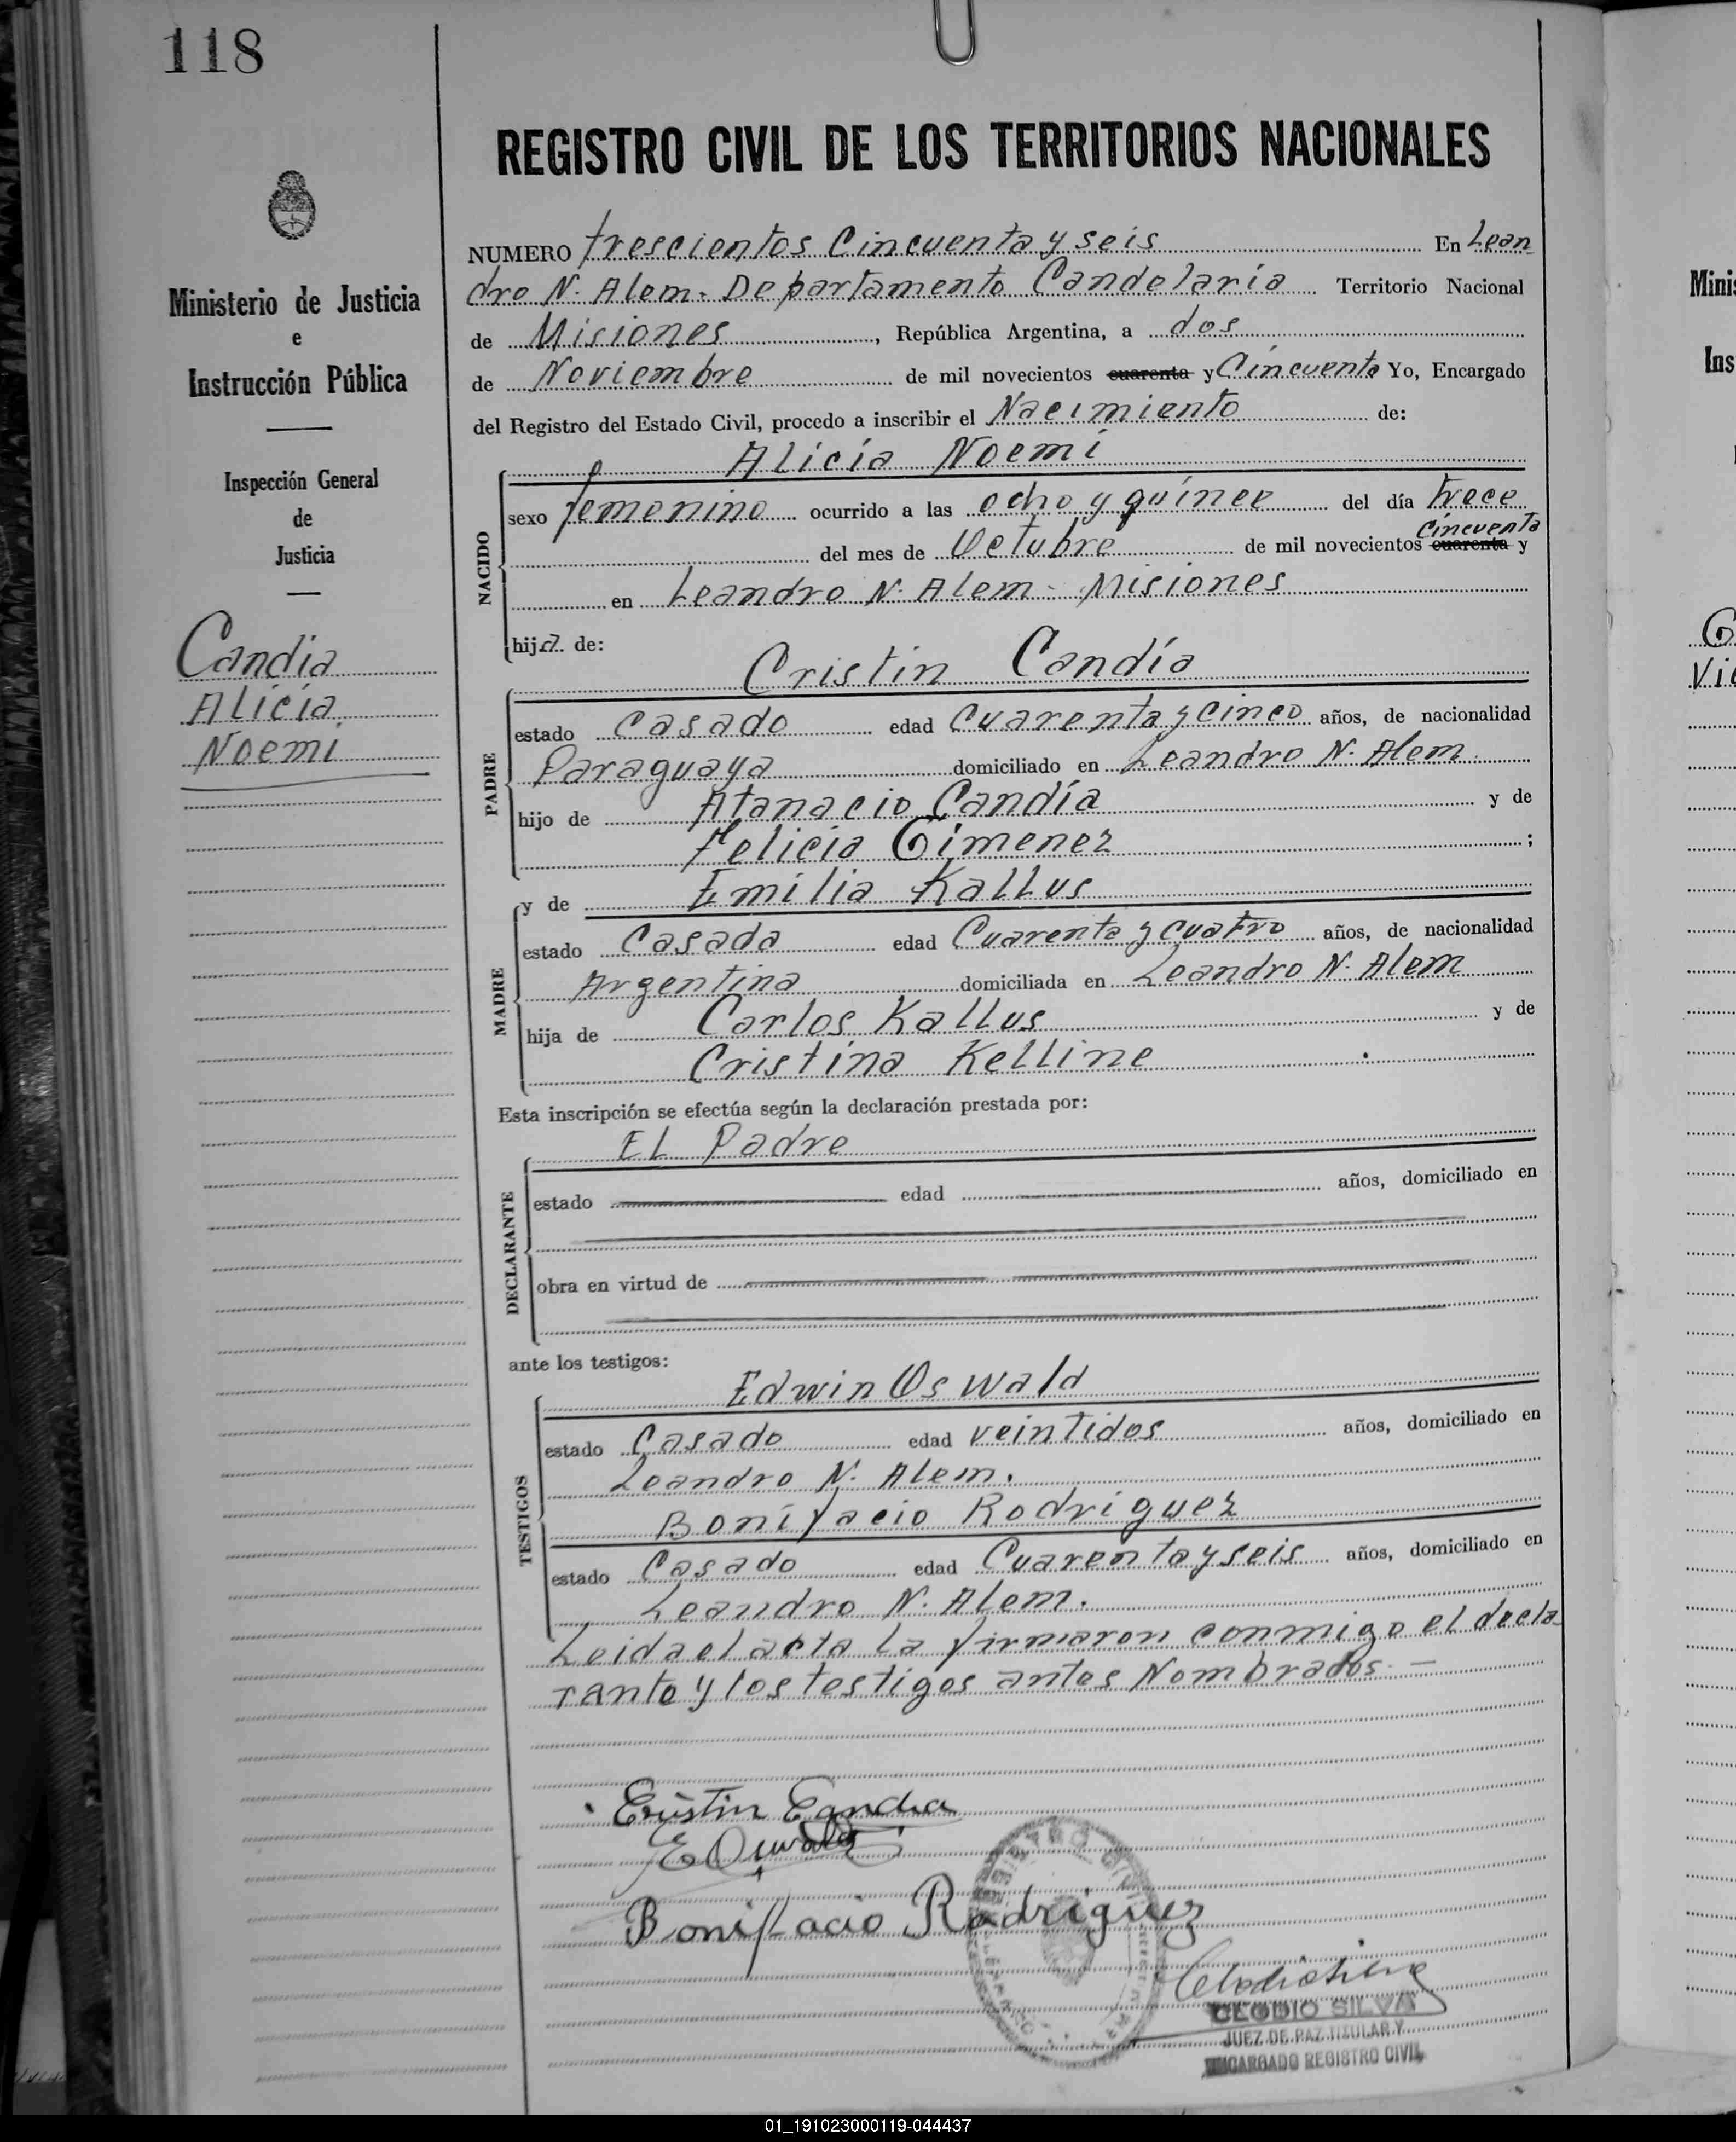 118
REGISTRO CIVIL DE LOS TERRITORIOS NACIONALES
Ministerio de Justicia
e
Instrucción Pública
Inspección General
de
Justicia
Candia
Alicia
Noemi
NUMERO trescientos Cincuenta y seis En Lean
dro N. Alem. Departamento Candelaria Territorio Nacional
de Misiones, República Argentina, a dos
de Noviembre de mil novecientos cuarenta y Cincuenta Yo, Encargado
del Registro del Estado Civil, procedo a inscribir el Nacimiento de:
Alicia Noemi
NACIDO
sexo femenino ocurrido a las ocho y quince del día trece
cincuenta
del mes de Octubre de mil novecientos cuarenta y
en Leandro N. Alem - Misiones
hija de:
Cristin Candía
PADRE
estado Casado edad Cuarenta y cinco años, de nacionalidad
Paraguaya domiciliado en Leandro N. Alem.
hijo de Atanacio Candía y de
Felicia Gimenez ;
y de Emilia Kallus
MADRE
estado Casada edad Cuarenta y cuatro años, de nacionalidad
Argentina domiciliada en Leandro N. Alem
hija de Carlos Kallus y de
Cristina Kelline
Esta inscripción se efectúa según la declaración prestada por:
EL Padre
DECLARANTE
estado edad años, domiciliado en
obra en virtud de
ante los testigos:
Edwin Oswald
TESTIGOS
estado Casado edad veintidos años, domiciliado en
Leandro N. Alem.
Bonifacio Rodriguez
estado Casado edad Cuarenta y seis años, domiciliado en
Leandro N. Alem.
Leida el acta la firmaron conmigo el decla
rante y los testigos antes Nombrados. —
Cristin Candia
E Oswald
Bonifacio Rodriguez
CLODIO SILVA
JUEZ DE PAZ TITULAR Y
ENCARGADO REGISTRO CIVIL
Minis
Ins
G
Vic
01_191023000119-044437